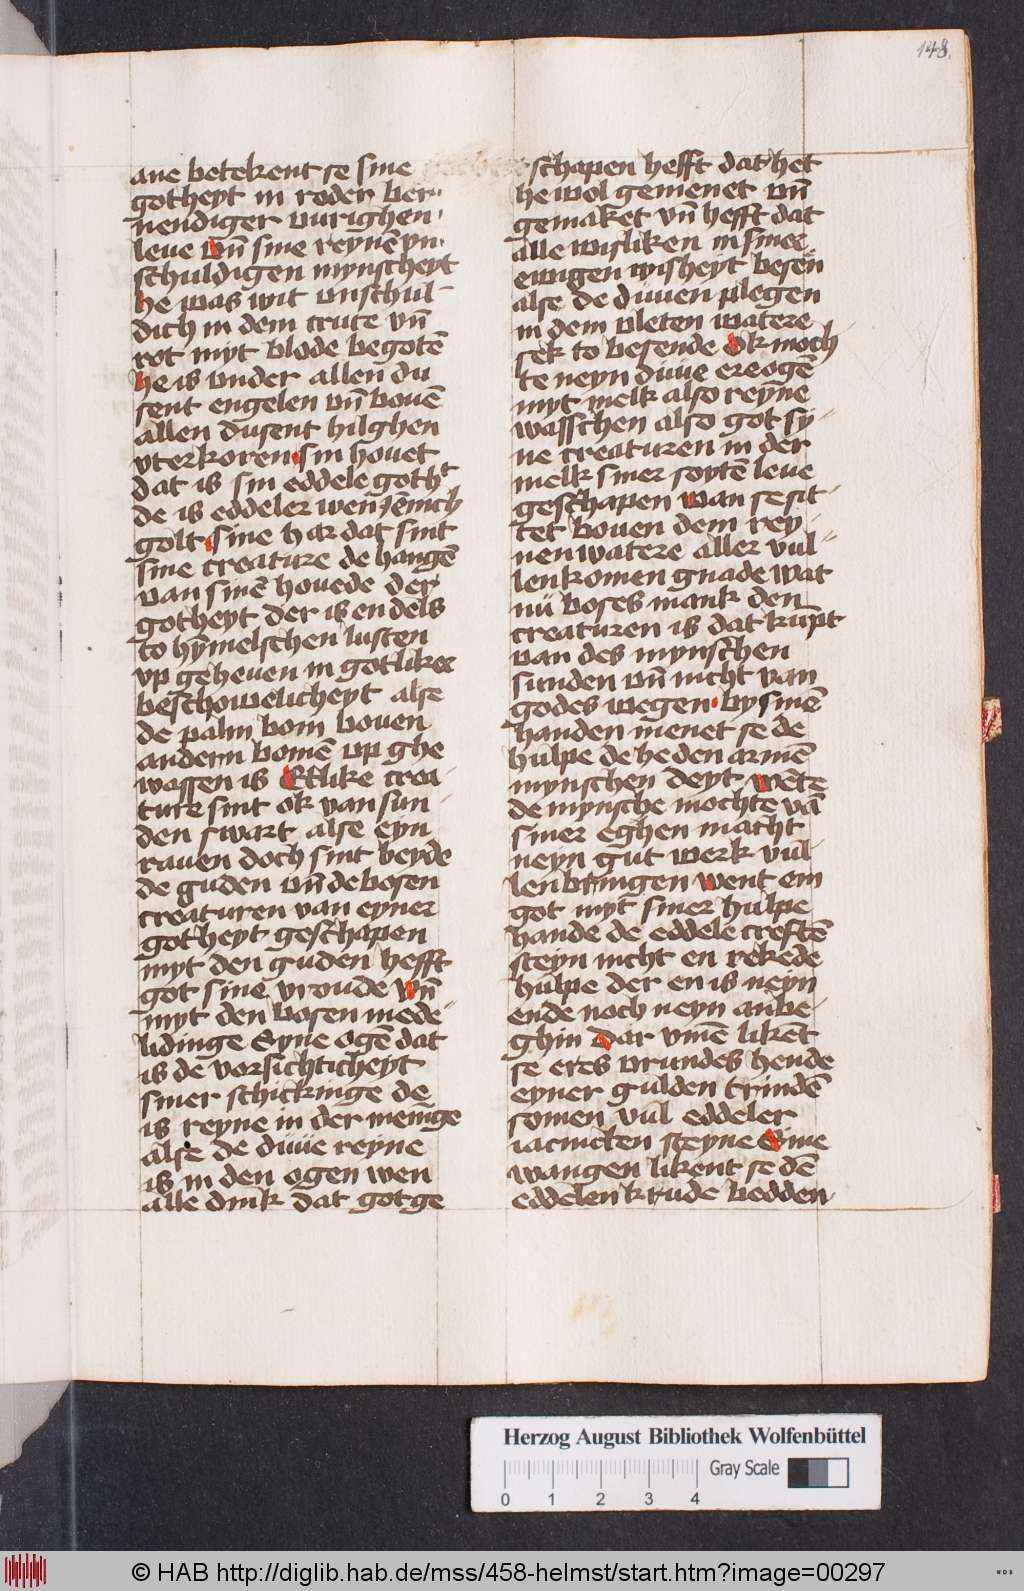 148.
ane betekent se sine
gotheyt in roder ber-
nendiger vurighen
leue vn̄ sine reynē vn-
schuldigen mynscheyt
he was wit vnschul
dich in dem trute vn̄
rot myt blode begotē
he is vnder allen du
sent engelen vn̄ bouē
allen dusent hilghen
vterkoren sin houet
dat is sin eddele goth
de is eddeler wen jēnich
golt sine har dat sint
sine creature de hangē
van sinē houede der
gotheyt der is en dels
to hȳmelschen lusten
vp geheuen in gotlikee
beschowelicheyt alse
de palm bom bouen
andern bomē vp ghe
wassen is Etlike crea-
ture sint ok van sun-
den swart alse eyn
rauen doch sint beyde
de guden vn̄ de bosen
creaturen van eyner
gotheyt geschapen
myt den guden hefft
got sine vroude vn̄
myt den bosen mede-
lidinge Syne ogē dat
is de vorsichticheyt
siner schickinge de
is reyne in der menige
alse de duue reyne
is in den ogen wen
alle dink dat got ge
schapen hefft dat het
he wol gemenet vn̄
gemaket vn̄ hefft dat
alle wisliken in sinee
ewigen wisheyt besen
alse de duuen plegen
in dem vleten watere
sek to besende Ok moch
te neyn duue ere ogē
myt melk also reyne
wasschen also got sy-
ne creaturen in der
melk siner soytē leue
geschapen wan se sit-
tet bouen dem rey-
nen watere aller vul-
lenkomen gnade wat
nu boses mank den
creaturen is dat kūpt
van des mynschen
sunden vn̄ nicht van
godes wegen by sinē
handen menet se de
hulpe de he den armē
mynschen deyt wēte
de mynsche mochte vā
siner eghen macht
neyn gut werk vul-
lenbringen went em
got myt siner hulpe
hande de eddele creftē
steyn nicht en rekede
hulpe der en is neyn
ende noch neyn anbe-
ghin Dar vmē likēt
se eres vrundes hende
eyner gulden trindē
somen vul eddeler
iacincten steyne Sine
wangen likent se dē
eddelen krude bedden
Herzog August Bibliothek Wolfenbüttel
Gray Scale
0 1 2 3 4
© HAB http://diglib.hab.de/mss/458-helmst/start.htm?image=00297